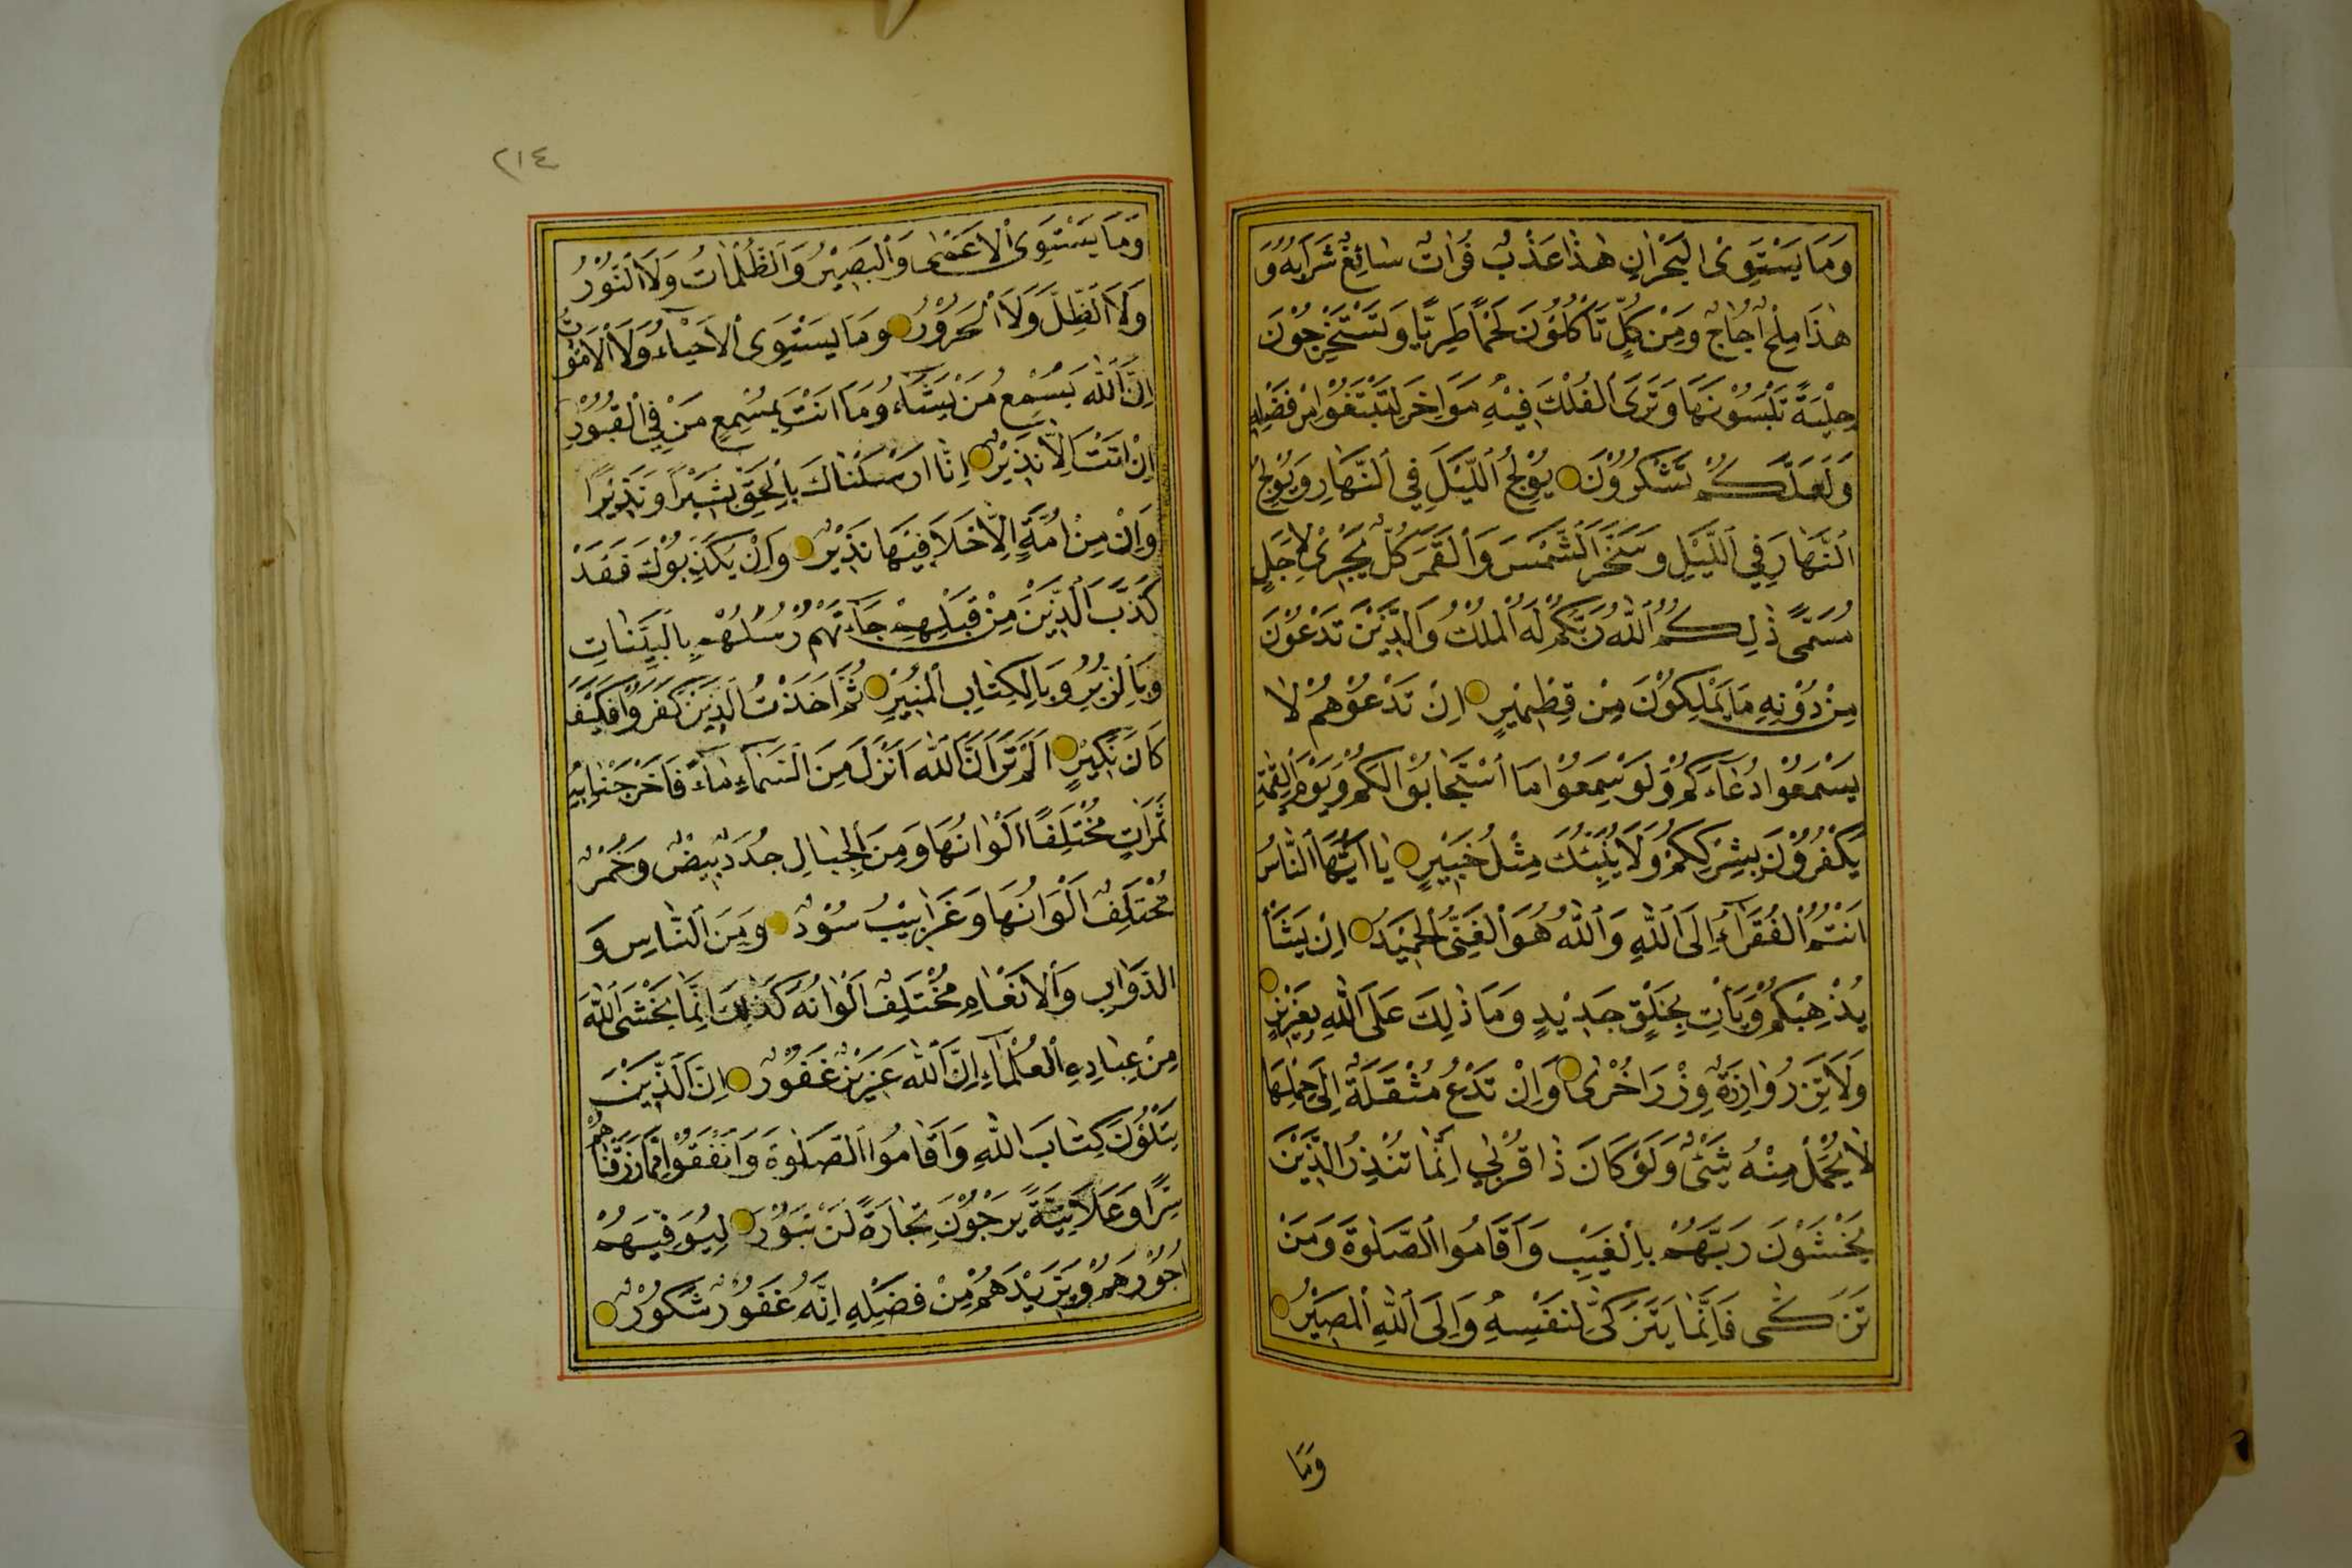 وَمَا يَسْتَوِى الْبَحْرَانِ هٰذَا عَذْبٌ فُرَاتٌ سَائِغٌ شَرَابُهُ وَ
هٰذَا مِلْحٌ اُجَاجٌ وَمِنْ كُلٍّ تَأْكُلُوْنَ لَحْمًا طَرِيًّا وَتَسْتَخْرِجُوْنَ
حِلْيَةً تَلْبَسُوْنَهَا وَتَرَى الْفُلْكَ فِيْهِ مَوَاخِرَ لِتَبْتَغُوْا مِنْ فَضْلِهِ
وَلَعَلَّكُمْ تَشْكُرُوْنَ يُوْلِجُ اللَّيْلَ فِي النَّهَارِ وَيُوْلِجُ
النَّهَارَ فِي اللَّيْلِ وَسَخَّرَ الشَّمْسَ وَالْقَمَرَ كُلٌّ يَجْرِىْ لِاَجَلٍ
مُسَمًّى ذٰلِكُمُ اللّٰهُ رَبُّكُمْ لَهُ الْمُلْكُ وَالَّذِيْنَ تَدْعُوْنَ
مِنْ دُوْنِهِ مَا يَمْلِكُوْنَ مِنْ قِطْمِيْرٍ اِنْ تَدْعُوْهُمْ لَا
يَسْمَعُوْا دُعَآءَكُمْ وَلَوْ سَمِعُوْا مَا اسْتَجَابُوْا لَكُمْ وَيَوْمَ الْقِيٰمَةِ
يَكْفُرُوْنَ بِشِرْكِكُمْ وَلَا يُنَبِّئُكَ مِثْلُ خَبِيْرٍ يَا اَيُّهَا النَّاسُ
اَنْتُمُ الْفُقَرَآءُ اِلَى اللّٰهِ وَاللّٰهُ هُوَ الْغَنِىُّ الْحَمِيْدُ اِنْ يَشَأْ
يُذْهِبْكُمْ وَيَأْتِ بِخَلْقٍ جَدِيْدٍ وَمَا ذٰلِكَ عَلَى اللّٰهِ بِعَزِيْزٍ
وَلَا تَزِرُ وَازِرَةٌ وِزْرَ اُخْرٰى وَاِنْ تَدْعُ مُثْقَلَةٌ اِلٰى حِمْلِهَا
لَا يُحْمَلْ مِنْهُ شَيْئٌ وَلَوْ كَانَ ذَا قُرْبٰى اِنَّمَا تُنْذِرُ الَّذِيْنَ
يَخْشَوْنَ رَبَّهُمْ بِالْغَيْبِ وَاَقَامُوا الصَّلٰوةَ وَمَنْ
تَزَكّٰى فَاِنَّمَا يَتَزَكّٰى لِنَفْسِهِ وَاِلَى اللّٰهِ الْمَصِيْرُ
وَمَا
٢١٤
وَمَا يَسْتَوِى الْاَعْمٰى وَالْبَصِيْرُ وَلَا الظُّلُمَاتُ وَلَا النُّوْرُ
وَلَا الظِّلُّ وَلَا الْحَرُوْرُ وَمَا يَسْتَوِى الْاَحْيَاءُ وَلَا الْاَمْوَاتُ
اِنَّ اللّٰهَ يُسْمِعُ مَنْ يَشَآءُ وَمَا اَنْتَ بِمُسْمِعٍ مَنْ فِي الْقُبُوْرِ
اِنْ اَنْتَ اِلَّا نَذِيْرٌ اِنَّا اَرْسَلْنَاكَ بِالْحَقِّ بَشِيْرًا وَنَذِيْرًا
وَاِنْ مِنْ اُمَّةٍ اِلَّا خَلَا فِيْهَا نَذِيْرٌ وَاِنْ يُكَذِّبُوْكَ فَقَدْ
كَذَّبَ الَّذِيْنَ مِنْ قَبْلِهِمْ جَآءَتْهُمْ رُسُلُهُمْ بِالْبَيِّنَاتِ
وَبِالزُّبُرِ وَبِالْكِتَابِ الْمُنِيْرِ ثُمَّ اَخَذْتُ الَّذِيْنَ كَفَرُوْا فَكَيْفَ
كَانَ نَكِيْرِ اَلَمْ تَرَ اَنَّ اللّٰهَ اَنْزَلَ مِنَ السَّمَآءِ مَآءً فَاَخْرَجْنَا بِهِ
ثَمَرَاتٍ مُخْتَلِفًا اَلْوَانُهَا وَمِنَ الْجِبَالِ جُدَدٌ بِيْضٌ وَحُمْرٌ
مُخْتَلِفٌ اَلْوَانُهَا وَغَرَابِيْبُ سُوْدٌ وَمِنَ النَّاسِ وَ
الدَّوَابِ وَالْاَنْعَامِ مُخْتَلِفٌ اَلْوَانُهُ كَذٰلِكَ اِنَّمَا يَخْشَى اللّٰهَ
مِنْ عِبَادِهِ الْعُلَمَآءُ اِنَّ اللّٰهَ عَزِيْزٌ غَفُوْرٌ اِنَّ الَّذِيْنَ
يَتْلُوْنَ كِتَابَ اللّٰهِ وَاَقَامُوا الصَّلٰوةَ وَاَنْفَقُوْا مِمَّا رَزَقْنَاهُمْ
سِرًّا وَعَلَانِيَةً يَرْجُوْنَ تِجَارَةً لَنْ تَبُوْرَ لِيُوَفِّيَهُمْ
اُجُوْرَهُمْ وَيَزِيْدَهُمْ مِنْ فَضْلِهِ اِنَّهُ غَفُوْرٌ شَكُوْرٌ